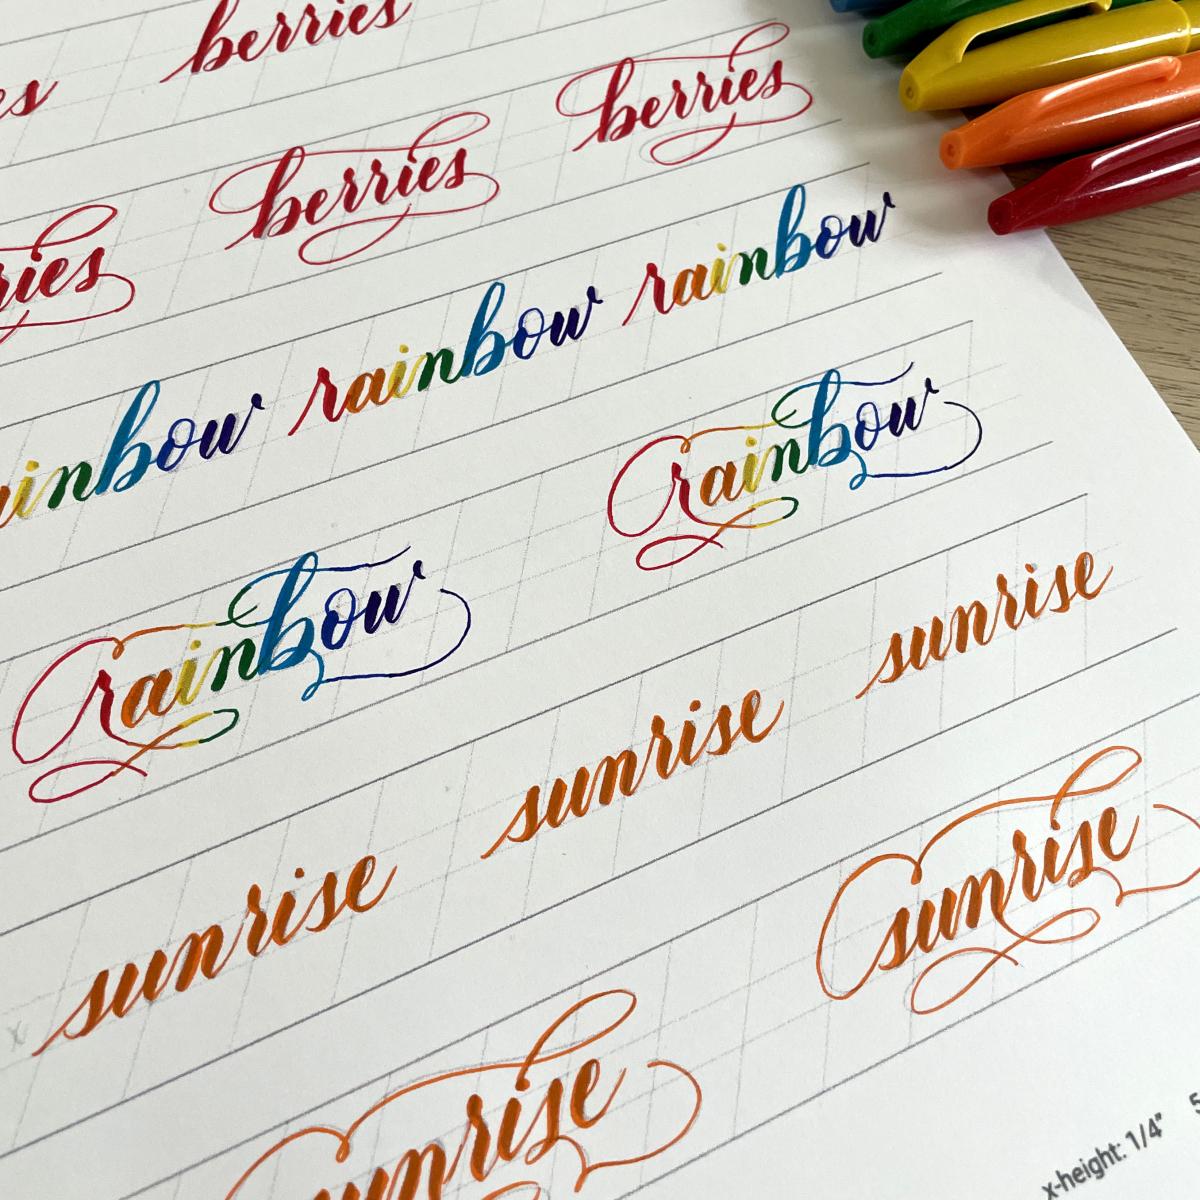 es berries
ries berries berries
ainbow rainbow rainbow
rainbow rainbow
sunrise sunrise sunrise
sunrise sunrise
x-height: 1/4" 5